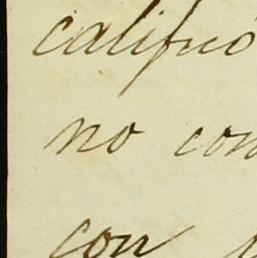 calificó
no con
con